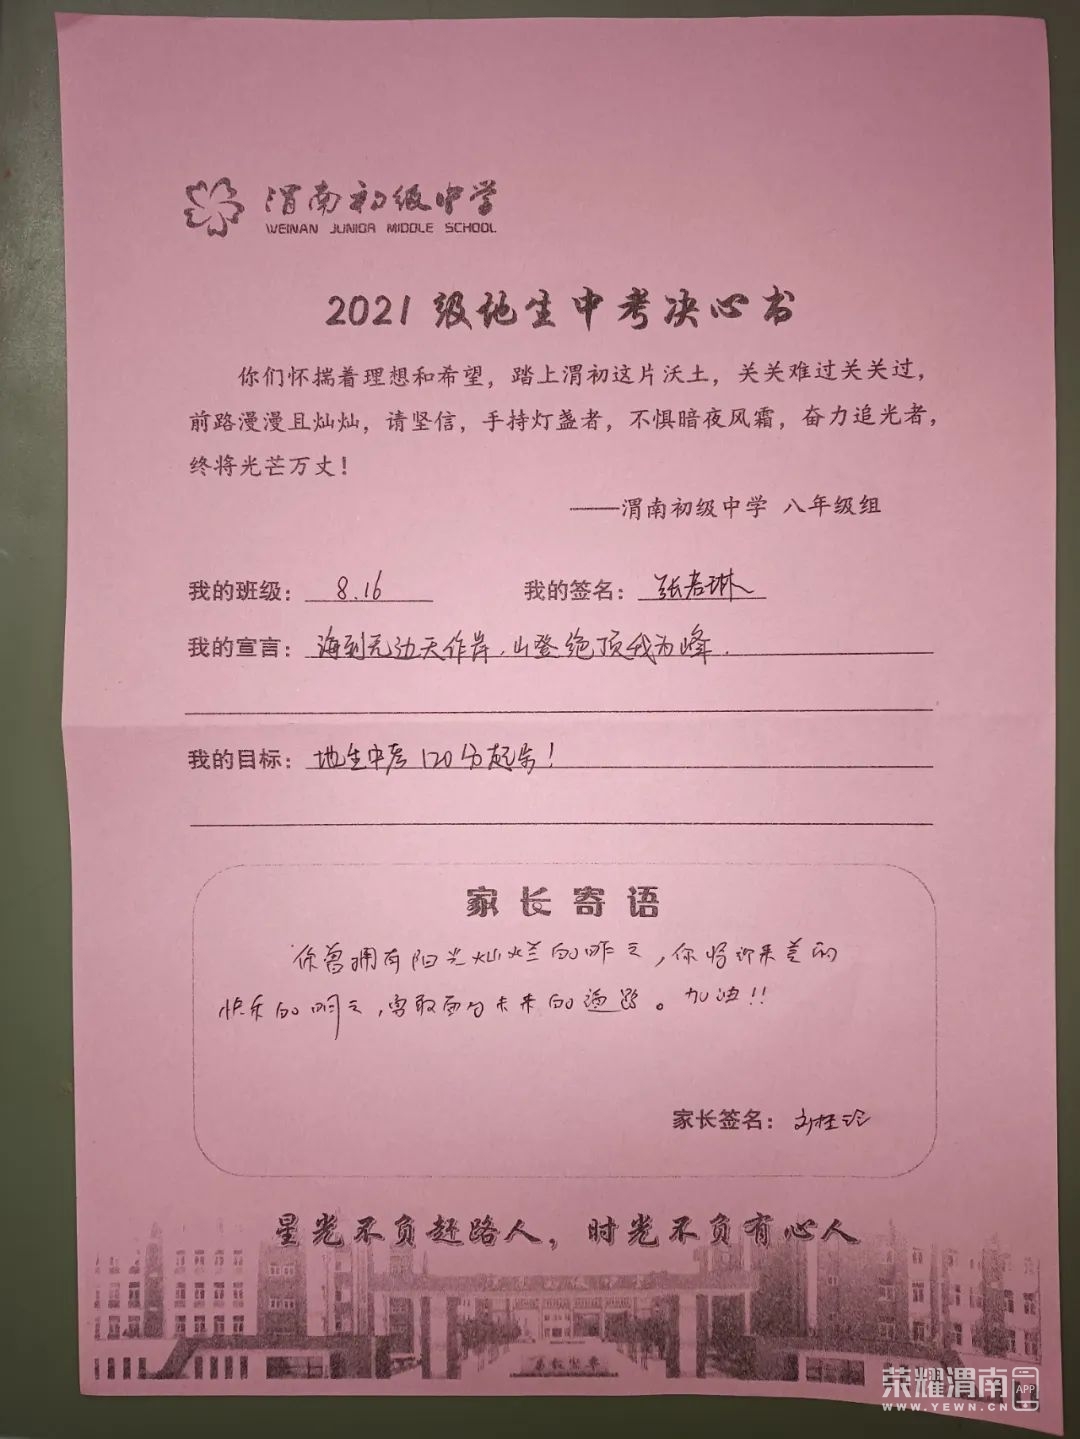 渭南初级中学
WEINAN JUNIOR MIDDLE SCHOOL
2021级地生中考决心书
你们怀揣着理想和希望，踏上渭初这片沃土，关关难过关关过，
前路漫漫且灿灿，请坚信，手持灯盏者，不惧暗夜风霜，奋力追光者，
终将光芒万丈！
——渭南初级中学 八年级组
我的班级： 8.16 我的签名：张若琳
我的宣言：海到无边天作岸，山登绝顶我为峰.
我的目标：地生中考120分起步！
家长寄语
你曾拥有阳光灿烂的昨天，你将迎来美的
快乐的明天，勇敢面对未来的道路。加油!!
家长签名：刘
星光不负赶路人，时光不负有心人
荣耀渭南 APP
WWW.YEWN.CN